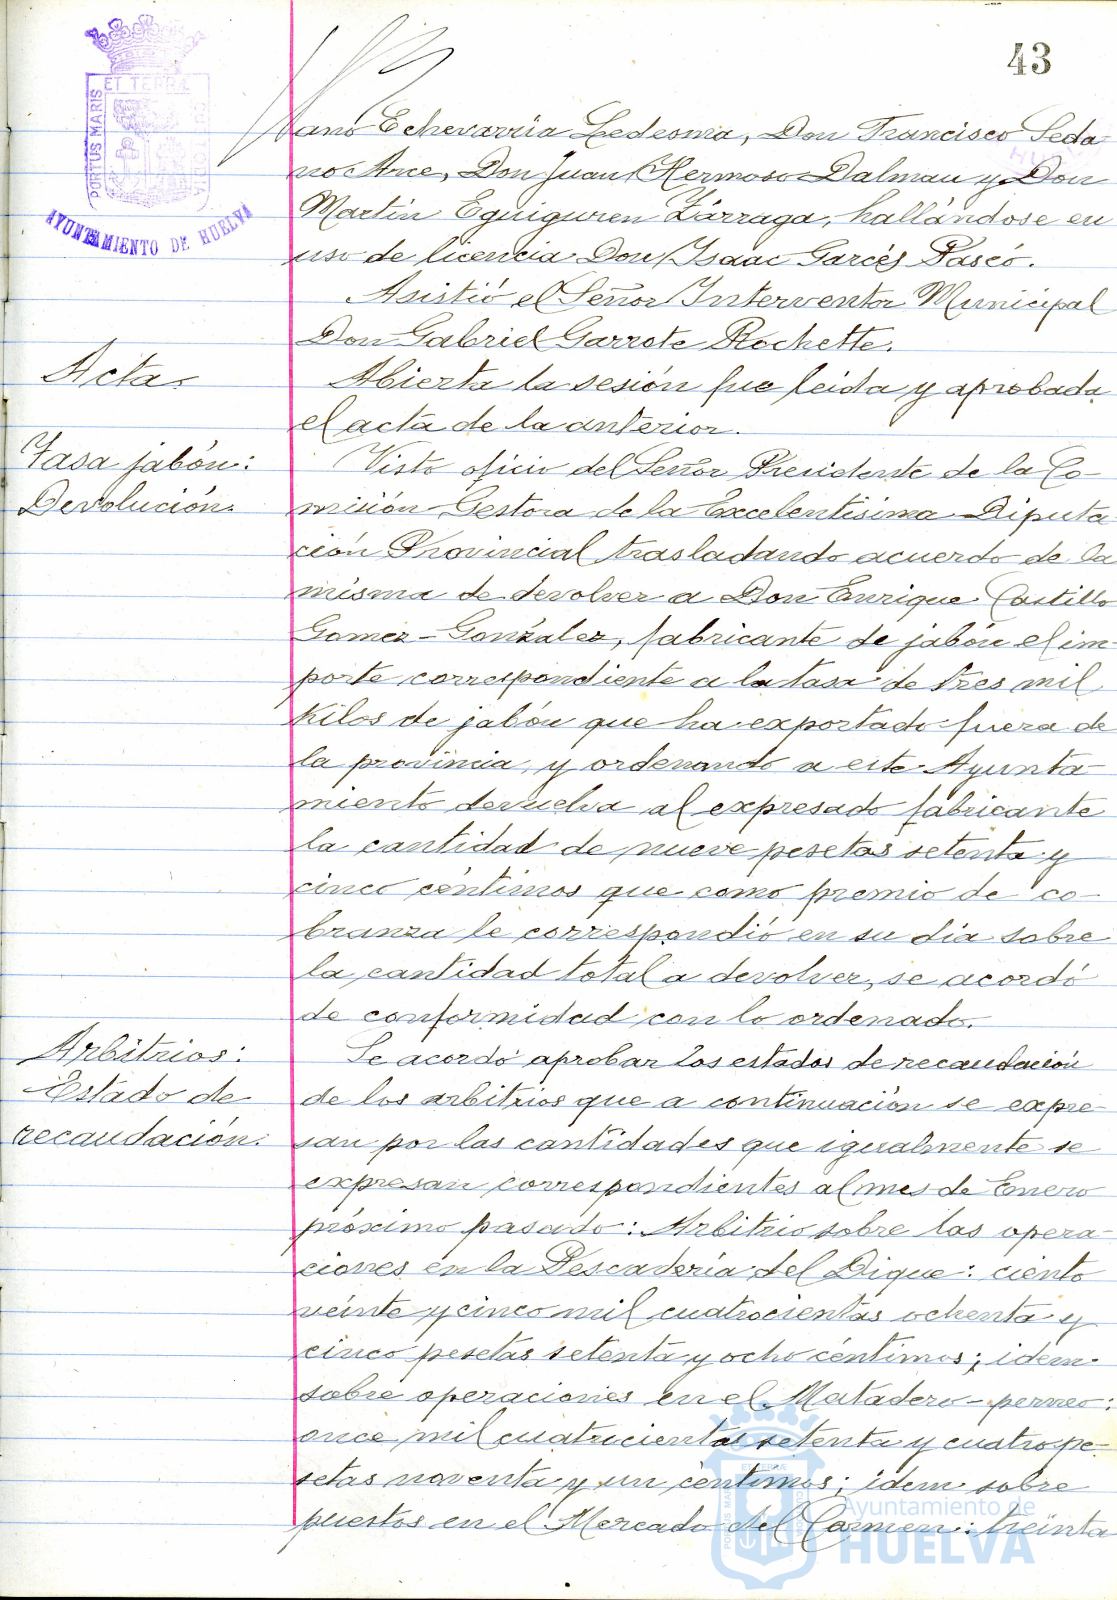 43
PORTUS MARIS ET TERRÆ CUSTODIA
AYUNTAMIENTO DE HUELVA
ano Echevarria Ledesma, Don Francisco Seda
no Arce, Don Juan Hermoso Dalmau y Don
Martín Eguiguren Zárraga, hallándose en
uso de licencia Don Isaac Garcés Pascó.
Asistió el Señor Interventor Municipal
Don Gabriel Garrote Rochette.
Acta.
Abierta la sesión fue leida y aprobada
el acta de la anterior.
Tasa jabón:
Devolución.
Visto oficio del Señor Presidente de la Co-
misión Gestora de la Excelentísima Diputa-
ción Provincial trasladando acuerdo de la
misma de devolver a Don Enrique Castillo
Gomez-González, fabricante de jabón el im-
porte correspondiente a la tasa de tres mil
kilos de jabón que ha exportado fuera de
la provincia y ordenando a este Ayunta-
miento devuelva al expresado fabricante
la cantidad de nueve pesetas setenta y
cinco céntimos que como premio de co-
branza le correspondió en su dia sobre
la cantidad total a devolver, se acordó
de conformidad con lo ordenado.
Arbitrios:
Estado de
recaudación.
Se acordó aprobar los estados de recaudación
de los arbitrios que a continuación se expre-
san por las cantidades que igualmente se
expresan correspondientes al mes de Enero
próximo pasado: Arbitrio sobre las opera-
ciones en la Pescadería del Dique: ciento
veinte y cinco mil cuatrocientas ochenta y
cinco pesetas setenta y ocho céntimos; idem
sobre operaciones en el Matadero-perneo:
once mil cuatrocientas setenta y cuatro pe-
setas noventa y un céntimos; idem sobre
puestos en el Mercado del Carmen: treinta
Ayuntamiento de
HUELVA